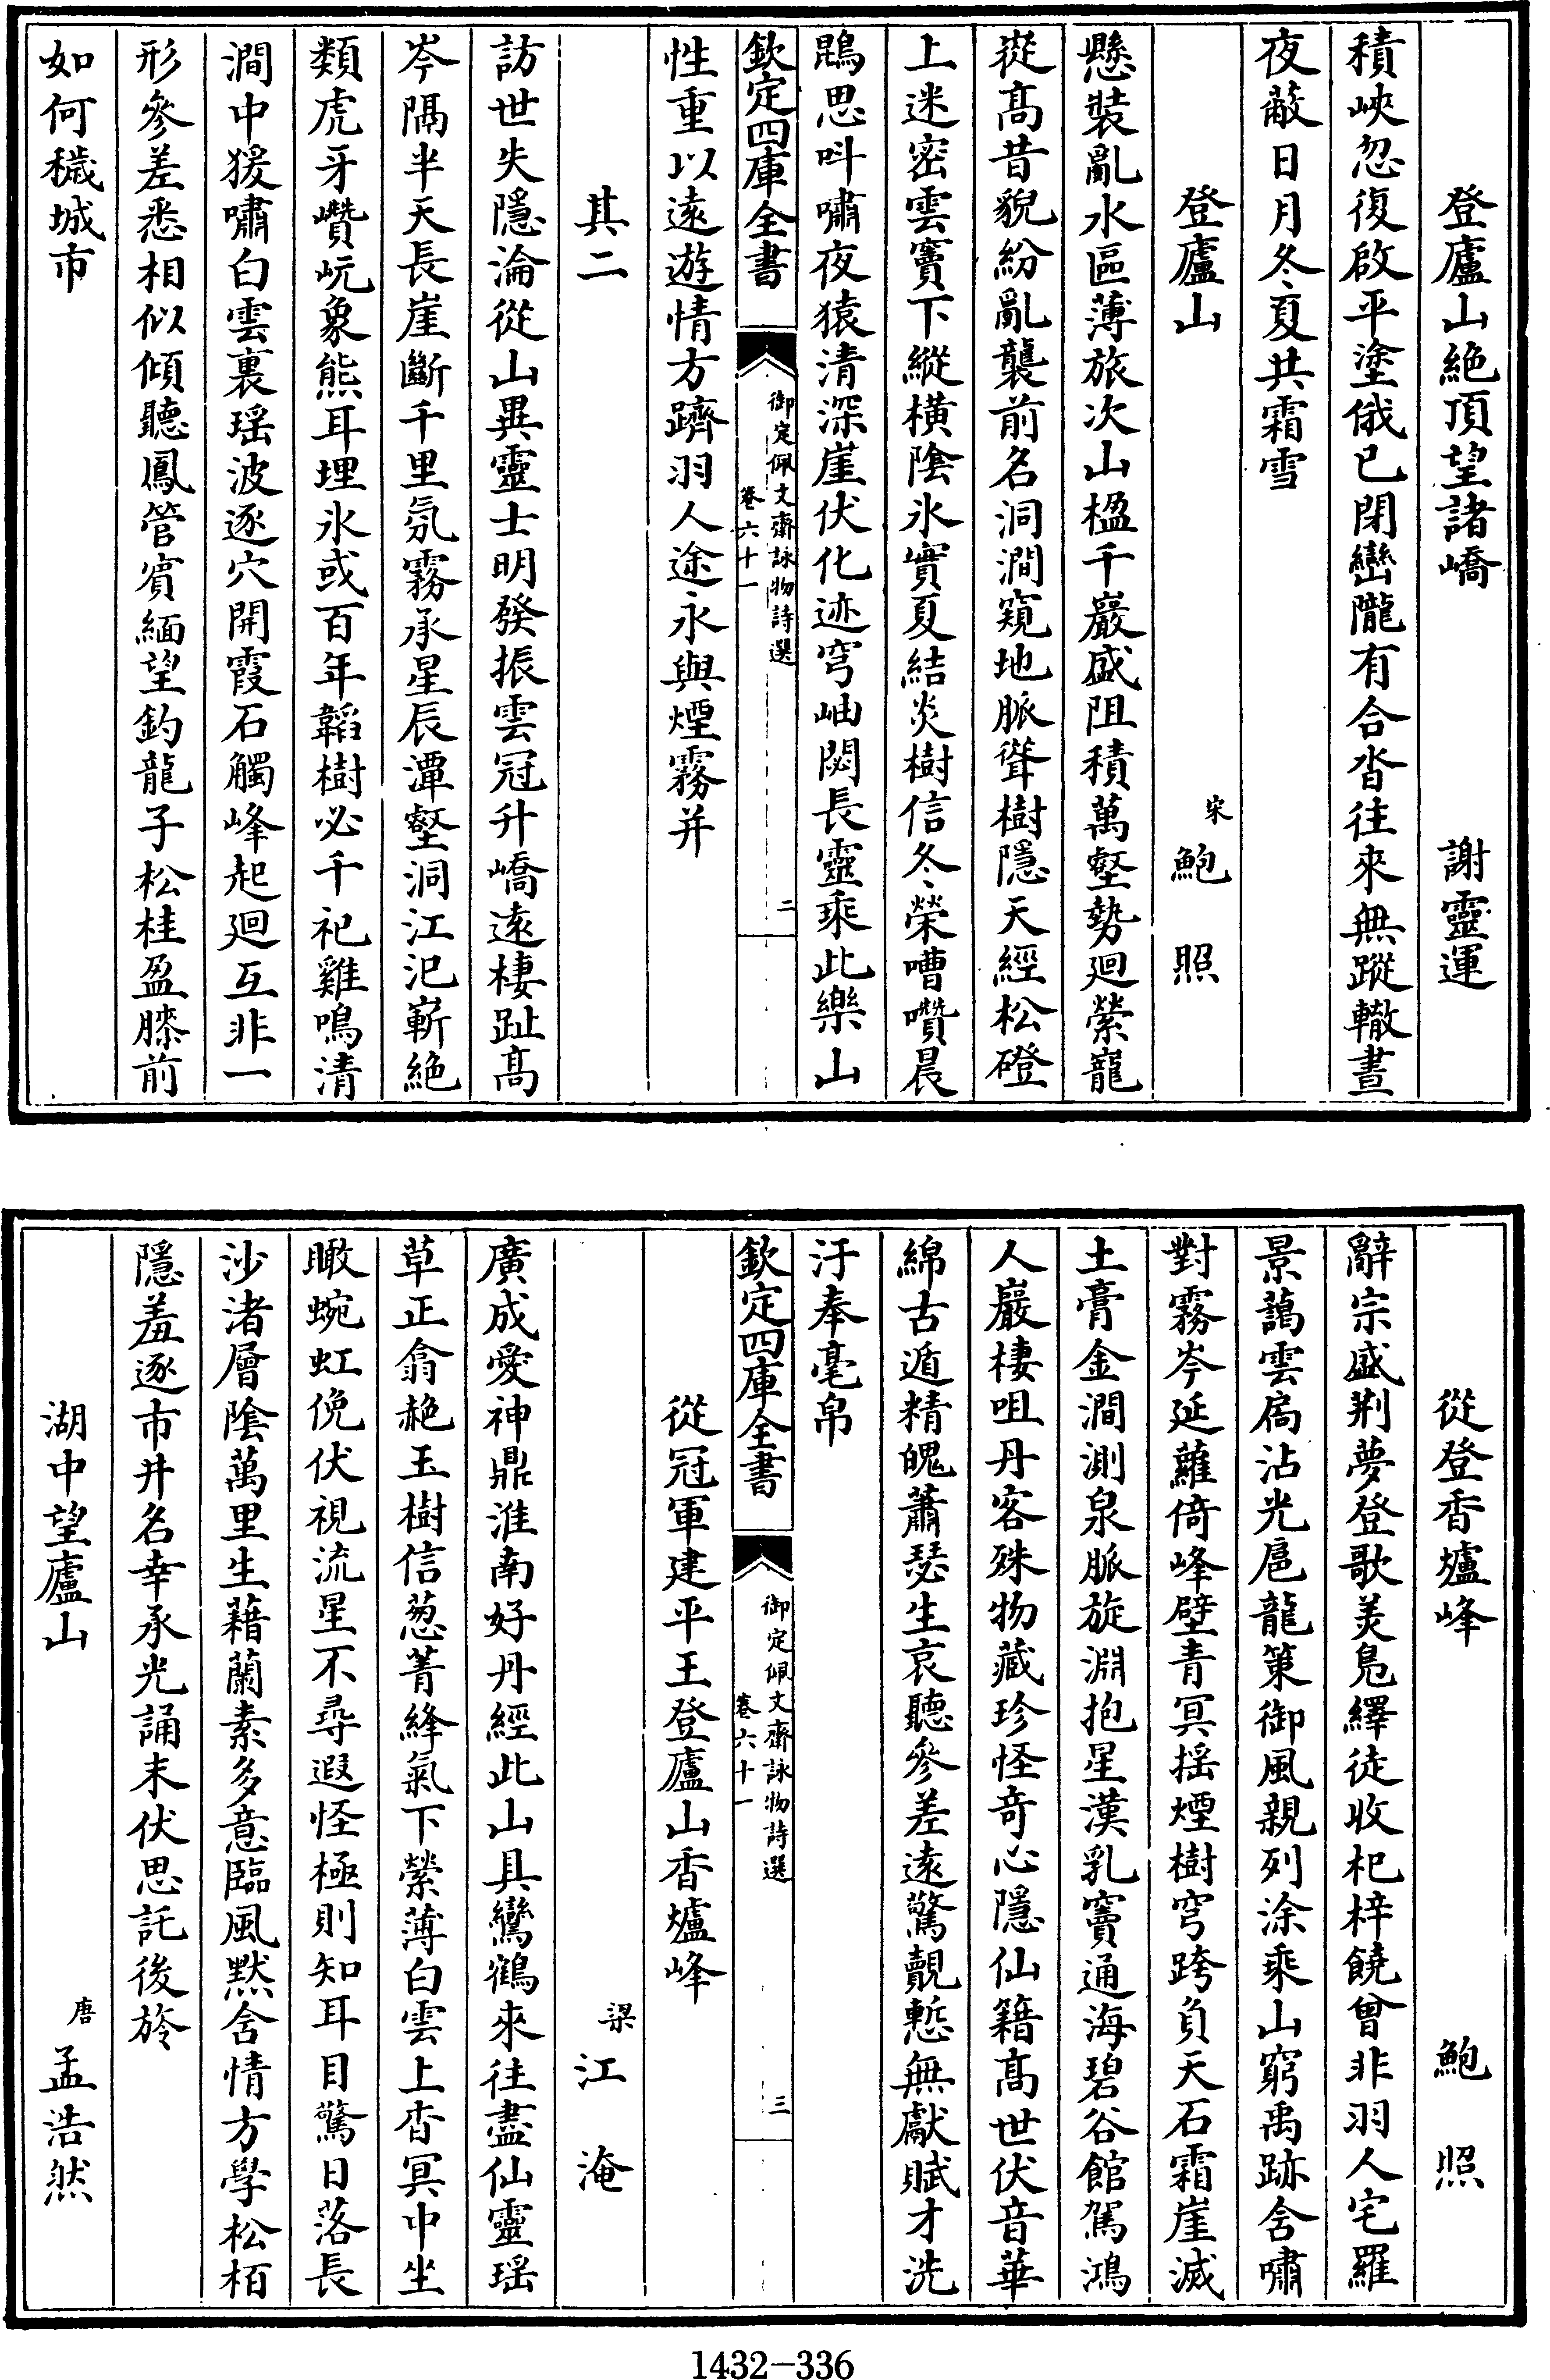 登廬山絶頂望諸嶠　謝靈運
積峽忽復啟平塗俄已閉巒隴有合沓往來無蹤轍晝
夜蔽日月冬夏共霜雪
登廬山　宋鮑照
懸裝亂水區薄旅次山楹千巖盛阻積萬壑勢廻縈巃
嵸髙昔貌紛亂襲前名洞澗窺地脈聳樹隱天經松磴
上迷密雲竇下縱橫隂氷實夏結炎樹信冬榮嘈囋晨
鵾思呌嘯夜猿清深崖伏化迹穹岫閟長靈乘此樂山
欽定四庫全書　御定佩文齋詠物詩選　卷六十一　二
性重以逺遊情方躋羽人途永與煙霧并
其二
訪世失隱淪從山異靈士明發振雲冠升嶠逺棲趾髙
岑隔半天長崖斷千里氛霧承星辰潭壑洞江汜嶄絶
類虎牙巑岏象熊耳埋氷或百年韜樹必千祀雞鳴清
澗中猨嘯白雲裏瑶波逐穴開霞石觸峰起廻互非一
形參差悉相似傾聽鳳管賔緬望釣龍子松桂盈膝前
如何穢城市
從登香爐峰　鮑照
辭宗盛荆夢登歌羙鳧繹徒收杞梓饒曾非羽人宅羅
景藹雲扃沾光扈龍策御風親列涂乘山窮禹跡含嘯
對霧岑延蘿倚峰壁青冥揺煙樹穹跨負天石霜崖滅
土膏金澗測泉脈旋淵抱星漢乳竇通海碧谷館駕鴻
人巖棲咀丹客殊物藏珍怪竒心隱仙籍髙世伏音華
綿古遁精魄蕭瑟生哀聽參差逺驚覿慙無獻賦才洗
汙奉毫帛
欽定四庫全書　御定佩文齋詠物詩選　卷六十一　三
從冠軍建平王登廬山香爐峰
梁江淹
廣成愛神鼎淮南好丹經此山具鸞鶴來往盡仙靈瑶
草正翕赩玉樹信葱菁絳氣下縈薄白雲上杳冥中坐
瞰蜿虹俛伏視流星不尋遐怪極則知耳目驚日落長
沙渚層隂萬里生藉蘭素多意臨風黙含情方學松栢
隱羞逐市井名幸承光誦末伏思託後旍
湖中望廬山　唐孟浩然
1432-336